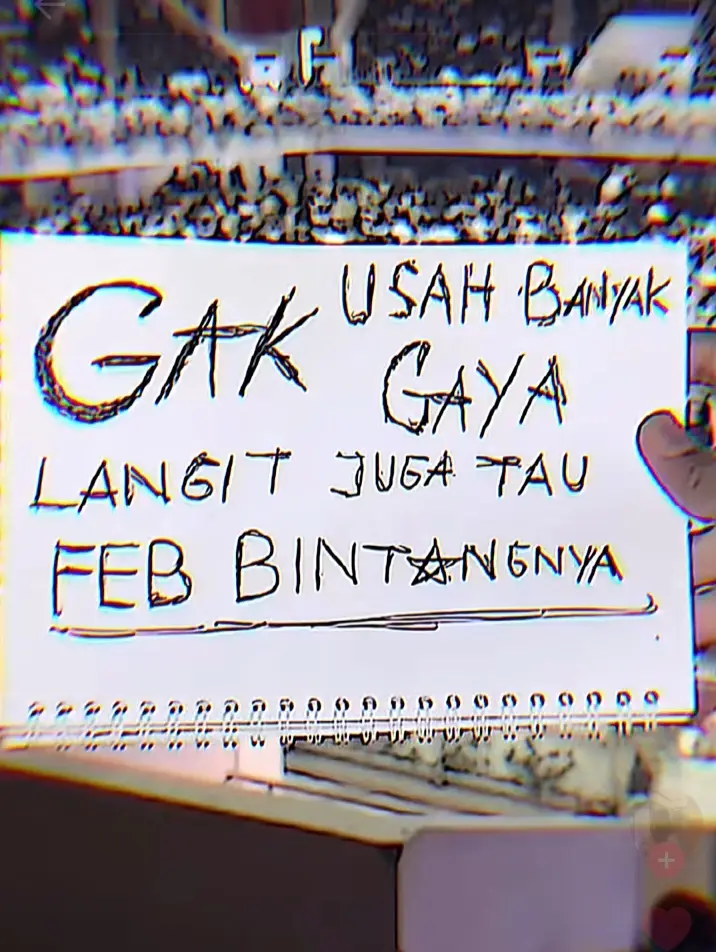 GAK USAH BANYAK
GAYA
LANGIT JUGA TAU
FEB BINTANGNYA